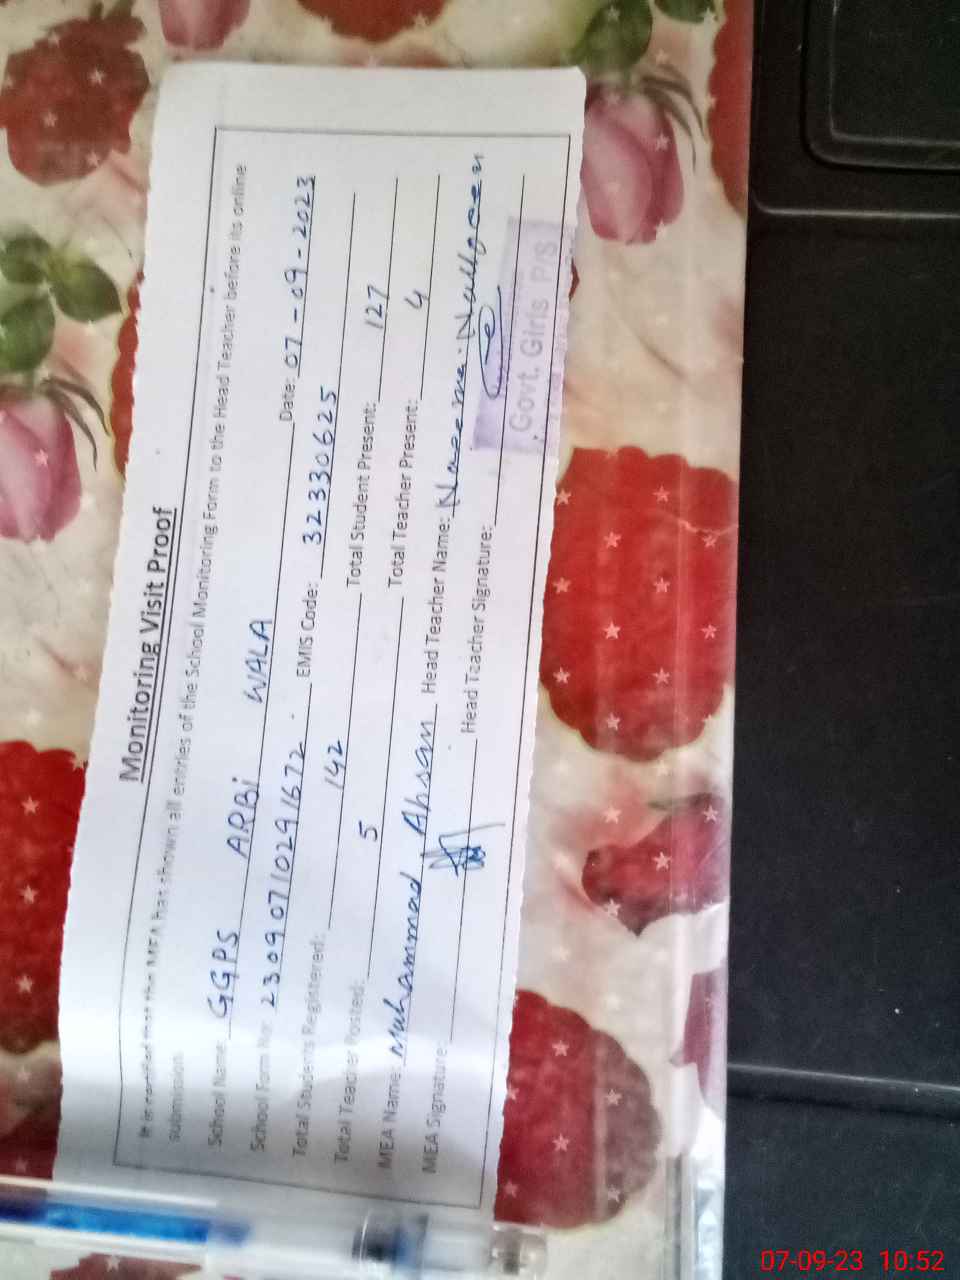 Monitoring Visit Proof
It is certified that the MEA has shown all entries of the School Monitoring Form to the Head Teacher before its online
submission.
School Name: GGPS ARBi WALA Date: 07-09-2023
School Form No: 23090710291672 EMIS Code: 32330625
Total Students Registered: 142 Total Student Present: 127
Total Teacher Posted: 5 Total Teacher Present: 4
MEA Name: Muhammad Ahsan Head Teacher Name: Naeema
MEA Signature: Head Teacher Signature:
Govt. Girls P/S
07-09-23 10:52